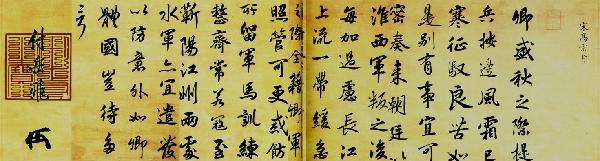 宋高宗
卿盛秋之際提
兵按邊風霜已
寒征馭良苦如
是別有事宜可
密奏來朝廷以
淮西軍叛之後
每加過慮長江
上流一帶緩急
之際全藉卿軍
照管可更戒飭
所留軍馬訓練
整齊常若寇至
蘄陽江州兩處
水軍亦宜遣發
以防意外如卿
體國豈待多
言
付岳飛